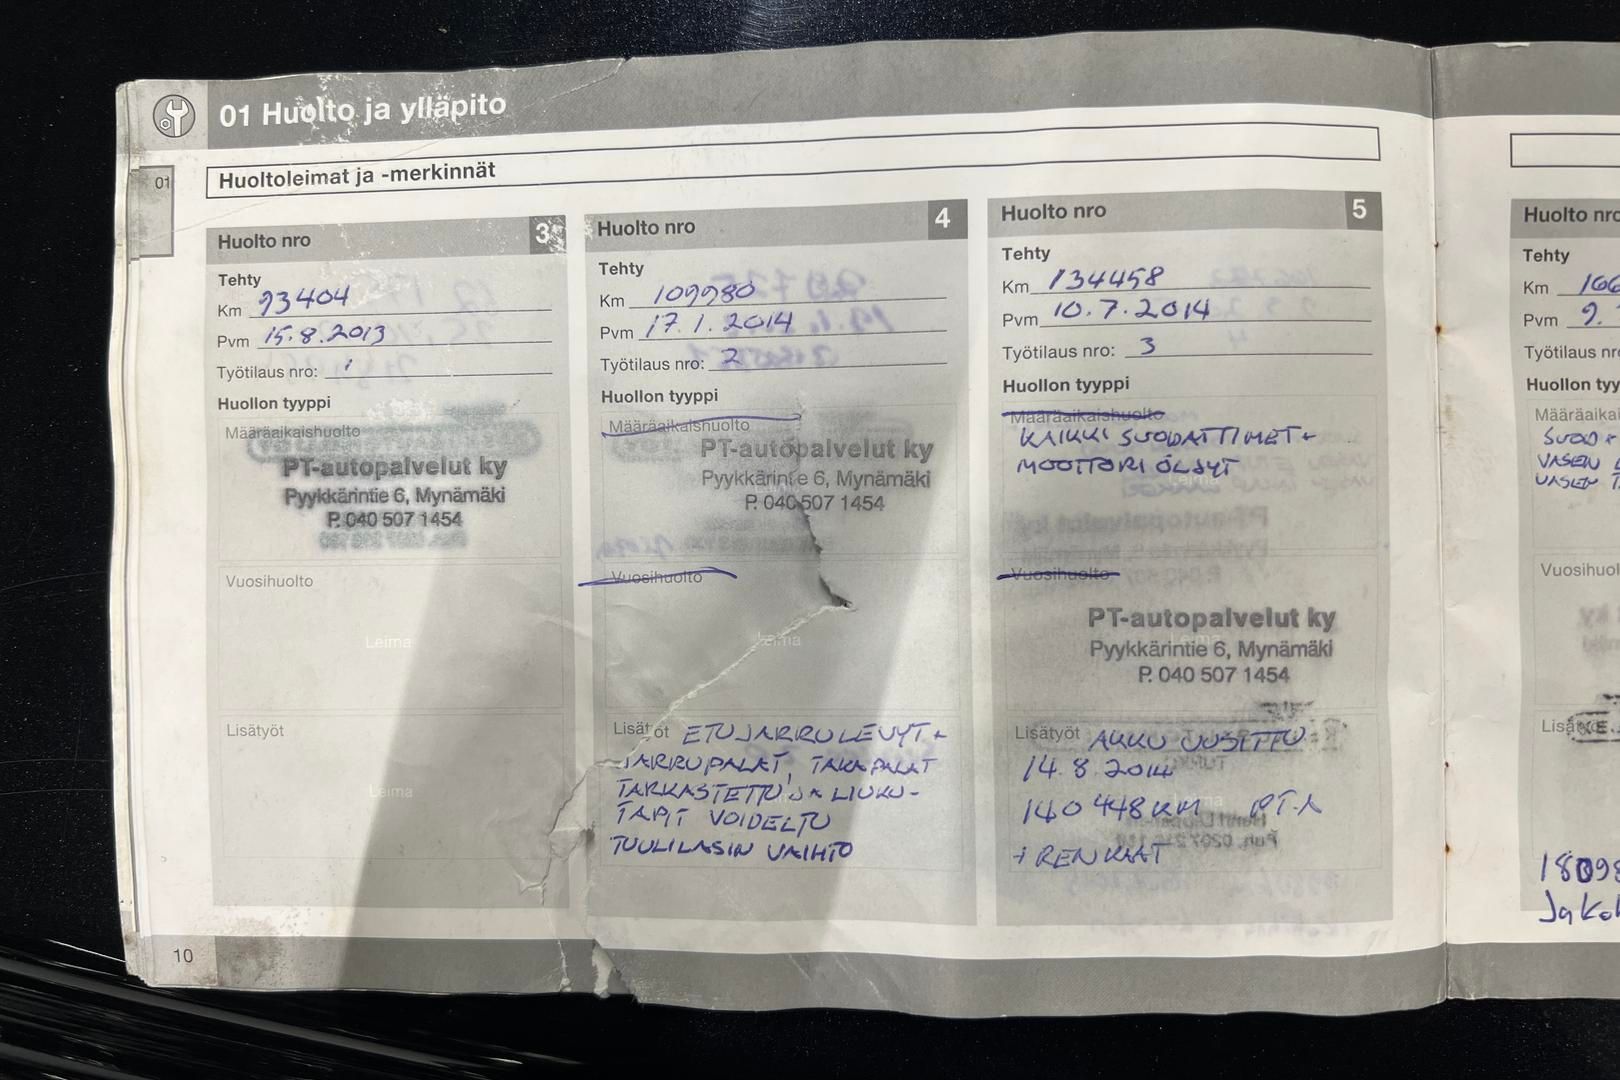 01 Huolto ja ylläpito
01
Huoltoleimat ja -merkinnät
Huolto nro 3
Tehty
Km 93404
Pvm 15.8.2013
Työtilaus nro: 1
Huollon tyyppi
Määräaikaishuolto
PT-autopalvelut ky
Pyykkärintie 6, Mynämäki
P. 040 507 1454
Vuosihuolto
Leima
Lisätyöt
Leima
Huolto nro 4
Tehty
Km 109980
Pvm 17.1.2014
Työtilaus nro: 2
Huollon tyyppi
Määräaikaishuolto
PT-autopalvelut ky
Pyykkärintie 6, Mynämäki
P. 040 507 1454
Vuosihuolto
Leima
Lisätyöt ETUJARRULEVYT +
JARRUPALAT, TAKAPALAT
TARKASTETTU JA LIUKU-
TAPIT VOIDELTU
TUULILASIN VAIHTO
Huolto nro 5
Tehty
Km 134458
Pvm 10.7.2014
Työtilaus nro: 3
Huollon tyyppi
Määräaikaishuolto
KAIKKI SUODATTIMET +
MOOTTORI ÖLJYT
Vuosihuolto
PT-autopalvelut ky
Pyykkärintie 6, Mynämäki
P. 040 507 1454
Lisätyöt AKKU UUSITTU
14.8.2014
140 448 KM PT-A
+ RENKAAT
Huolto nro
Tehty
Km 166
Pvm 9.
Työtilaus nr
Huollon tyy
Määräaikai
SUOD +
VASEN
VASEN T
Vuosihuol
Lisä
1809
Jako
10